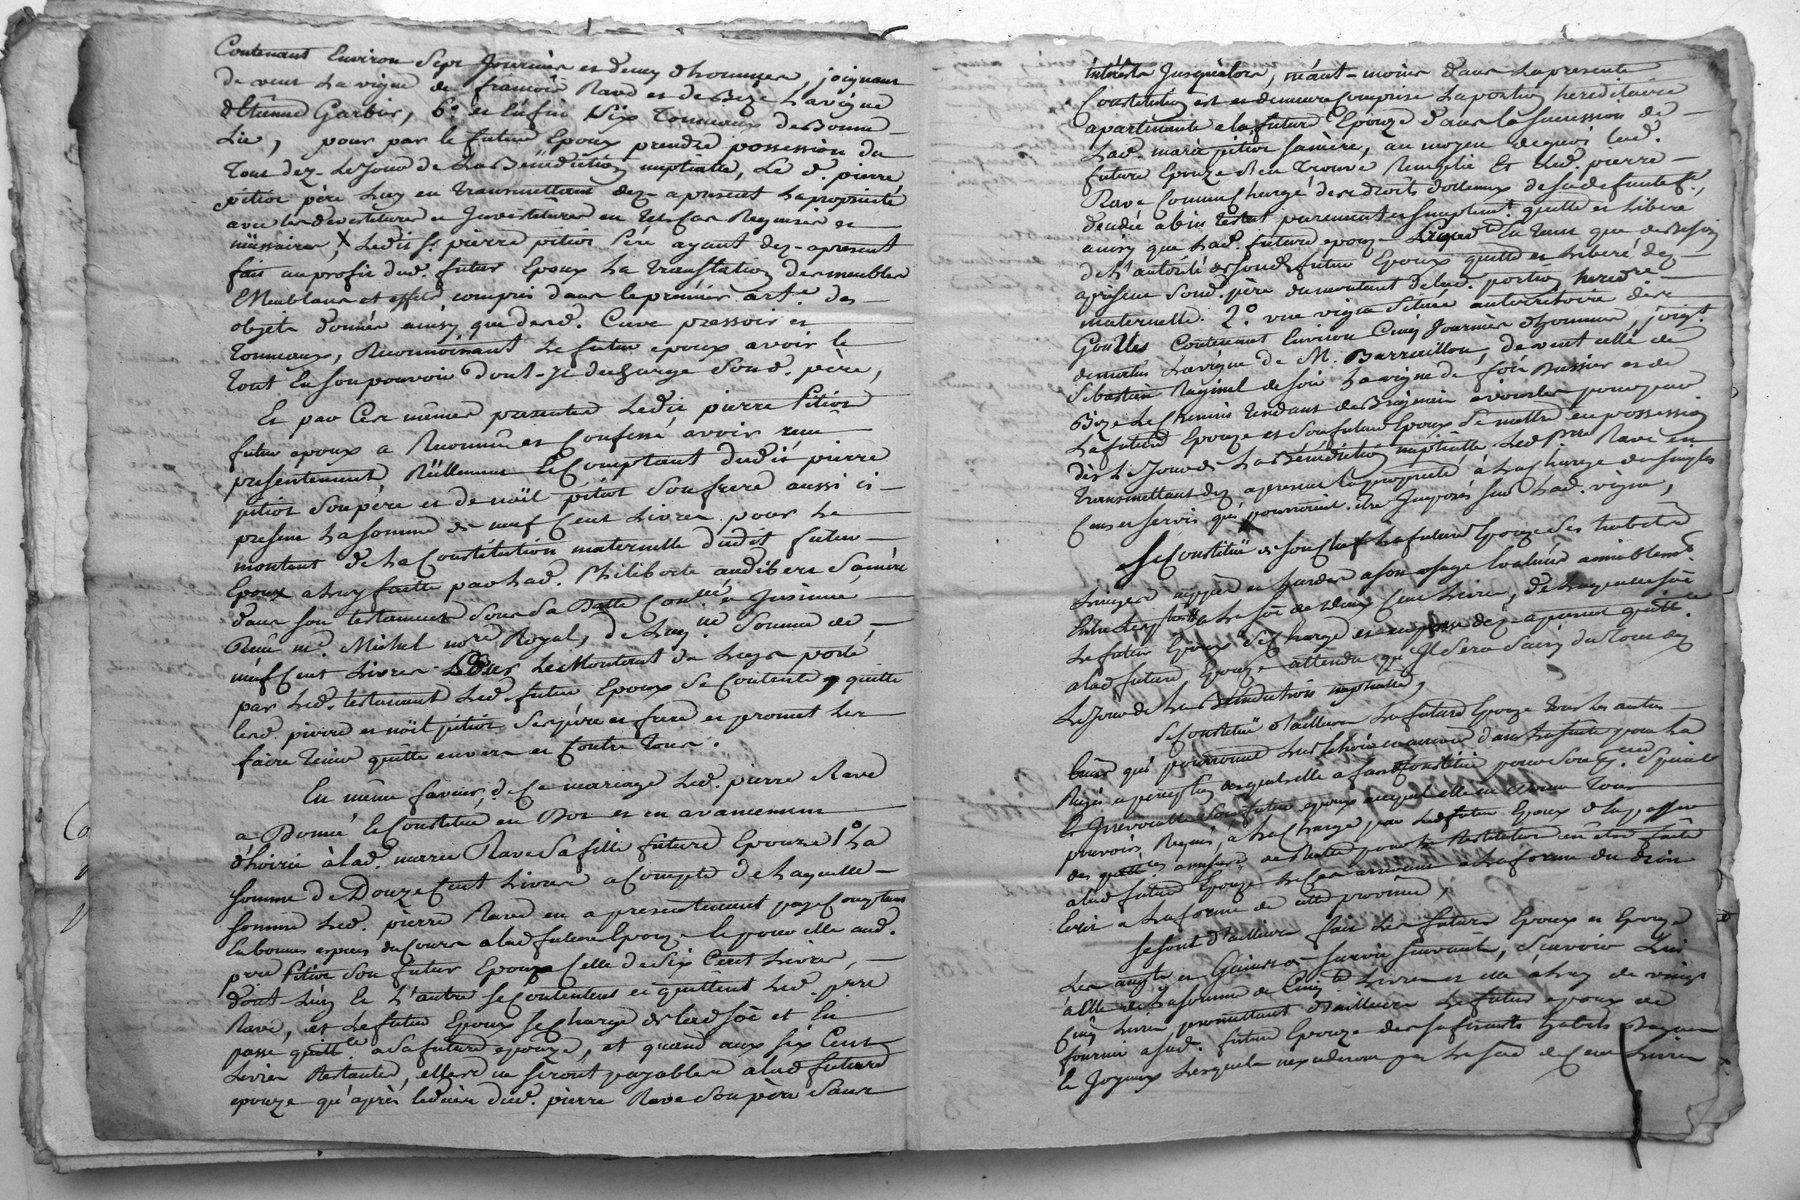 Contenant Environ Sept Journées et demy d'hommes, joignant
de vent La vigne de francois Rave et de Bize La vigne
d'Etienne Garbis, 6.° et Enfin Six Tonneaux de Bonne
Lie, pour par le futur Epoux prendre possession du
Tout dez-Le Jour de La Bénédiction nuptialle, Le d. pierre
pitiot père Luy en Transmettant dez-apresent La proprieté
avec les devestitures et Investitures en tel Cas Requises et
nessaires, X Ledit S.r pierre pitiot Père ayant dez-apresent
fait au profit dud. futur Epoux La Translation des meubles
Meublans et effets compris dans le premier art.e des
objets donnés ainsy que desd. Cuve pressoir et
Tonneaux, Reconnoissant Le futur epoux avoir le
Tout En son pouvoir dont-Il decharge Sond. père,
Et par Ces mêmes presentes Ledit pierre Pitiot
futur epoux a Reconnu et Confessé avoir reçu
presentement Réellement & Comptant dudit pierre
pitiot Son père et de noël pitiot Son frere aussi ci-
present La somme de neuf Cent Livres pour Le
montant de La Constitution maternelle dudit futur
Epoux a Luy faitte par Lad. Philiberte audibert Sa mère
dans son testament Sous Sa Datte Con.lé et Insinué
Reçu m.e Michel no.re Royal, de Laq.lle Somme de
neuf Cent Livres pour Le Montant du Legs porté
par Led. testament Led. futur Epoux Se Contente, quitte
Lesd. pierre et noël pitiot Ses père et frere et promet Les
faire Tenir quitte envers et Contre Tous.
En même faveur, de Ce mariage Led. pierre Rave
a Donné & Constitué en Dot et en avancement
d'hoirie à Lad. marie Rave Sa fille future Epouze 1.° La
Somme de Douze Cent Livres a Compte de Laquelle
Somme Led. pierre Rave en a presentement payé Comptant
En bonnes especes du Cours a Lad. future Epouze & pour elle aud.
p.rre Pitiot Son futur Epoux Celle de Six Cent Livres,
dont L'un & L'autre Se Contentent et quittent Led. p.rre
Rave, et Le futur Epoux Se Charge de Lad. Sôe et En
passe quitt.ce a Sa future epouze, et quand aux Six Cent
Livres Restantes, elles ne Seront payables a Lad. future
epouze qu'après Le décès dud. pierre Rave Son père Sans
intérêts Jusqu'alors, néant-moins dans La presente
Constitution est et demeure Comprise La portion hereditaire
apartenante a la future Epouze dans la Sucession de
Lad. marie pitiot Sa mère, au moyen de quoi Lad.
future Epouze S'en trouve Remplie Et Led. pierre
Rave Comme Chargé des droits dotteaux de Sa defunte f.e,
décédée abintestat purement et Simplement quitte et Liberé
ainsy que Lad. future epouze En Tant que de Besoin
de L'autorité de Sond. futur Epoux quitte et Liberé dez-
apresent Sond. père du montant de Lad. portion hered.re
maternelle. 2.° une vigne Située au territoire des
Gouttes Contenant Environ Cinq Journées d'hommes, joig.t
de matin La vigne de M. Barraillon, de vent celle de
Sébastien Raginel de Soir La vigne de Bussier et de
Bize Le Chemin Tendant de a pour par
La future Epouze et Son futur Epoux Se mettre en possession
dès Le Jour de La Bénédiction nuptialle Led. p.rre Rave en
Transmettant dez apresent La proprieté à La Charge des Simples
Cens et Servis qui pourroient être Imposés Sur Lad. vigne,
Se Constitüe de Son Chef La future Epouze Ses habits
Linges nippes et hardes a Son usage Evalués amiablem.t
Entre Les parties a La Sôe de Deux Cent Livres, de Laquelle Sôe
Le futur Epoux Se Charge et en passe dez-apresent quitt.ce
a Lad. future Epouze attendu qu'Il Sera Saisy du Tout dez
Le Jour de La Bénédiction nuptialle,
Se Constitüe d'ailleurs La future Epouze Tous Les autres
biens qui pourront Luy Echoir ou avenir dans La Suite pour La
Régie et perception desquels elle a fait & Constitüé pour Son Special
& Irrevocable Son futur epoux auquel elle en donne Tous
pouvoirs Requis, à La Charge par Led. futur Epoux d'en passer
des quitt.ces a mesure de Recette pour La Restitution en etre faite
a Lad. future Epouze Le Cas arrivant a La forme du droit
Ecrit a La forme de cette province,
Se Sont d'ailleurs fait Les futurs Epoux et Epouze
Les augts et Gains de Survie Suivants, Scavoir Lui
à elle de La somme de Cinq.te Livres et elle à Luy de vingt
Cinq Livres, promettant d'ailleurs Le futur epoux de
fournir a Sad. future Epouze des Suffisants habits Bagues
& Joyaux Lesquels n'excederont pas La Sôe de Cent Livres